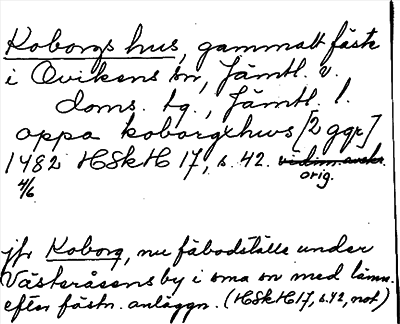 Koborgs hus, gammalt fäste
i Ovikens sn, Jämtl. v.
doms. tg., Jämtl. l.
oppa koborgxhws [2 ggr]
1482 HSkH 17, s. 42. vidim. avskr.
4/6 orig.
jfr Koborg, nu fäbodställe under
Västeråsens by i sma sn med lämn.
efter fästn. anläggn. (HSkH 17, s. 42, not)